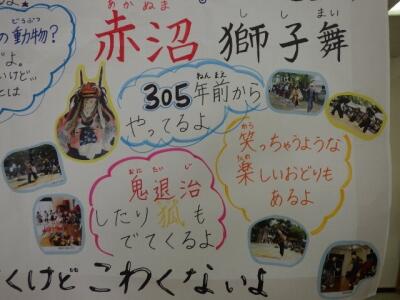 あかぬま
赤沼
ししまい
獅子舞
どうぶつ
の動物?
だよ。
いけど…
とは
ねんまえ
305年前から
やってるよ
わら
笑っちゃうような
たの
楽しいおどりも
あるよ
おにたいじ
鬼退治
したり狐も
でてくるよ
くけどこわくないよ